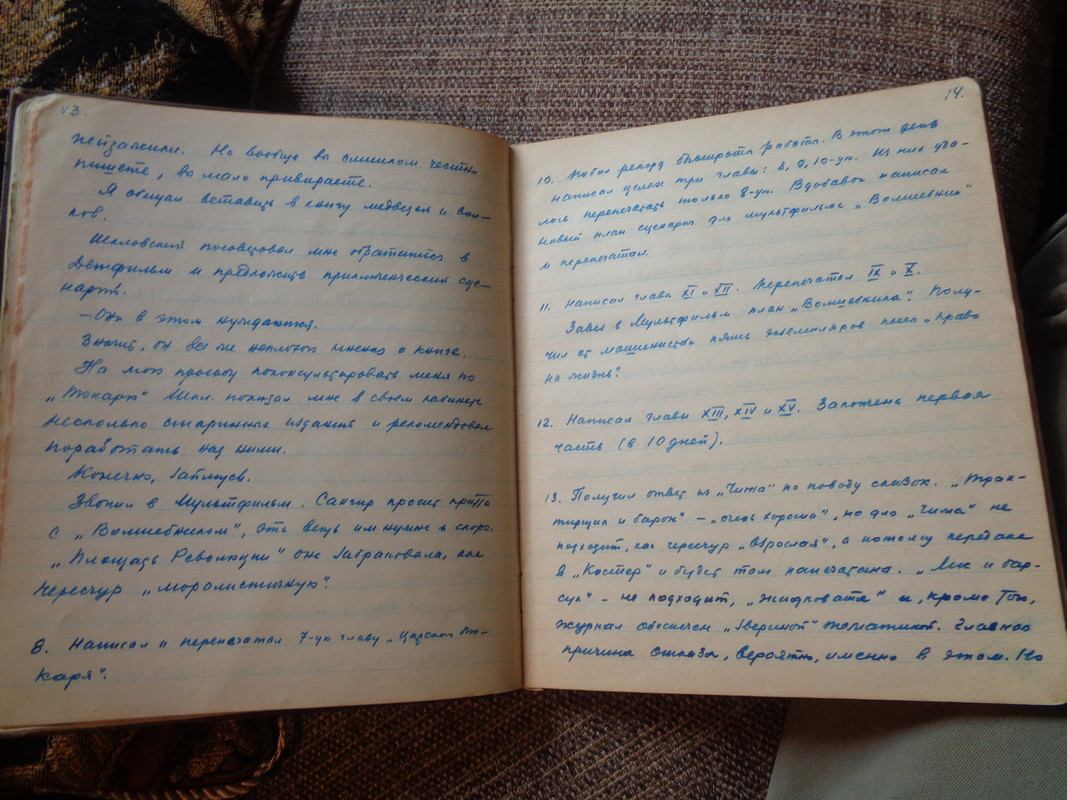 13.
пейзажили. Но вообще вы слишком честно
пишете, вы мало привираете.
Я обещал вставить в книгу медведей и вол-
ков.
Шкловский посоветовал мне обратиться в
Детфильм и предложить приключенческий сце-
нарий.
— Они в этом нуждаются.
Значит, он всё же неплохого мнения о книге.
На мою просьбу поконсультировать меня по
„Токарю" Шкл. показал мне в своём кабинете
несколько старинных изданий и рекомендовал
поработать над ними.
Конечно, займусь.
Звонил в Мультфильм. Сангир просит притти
с „Волшебником", эта вещь им нужна и скоро.
„Площадь Революции" они забраковали, как
чересчур „моралистичную".
8. Написал и перепечатал 7-ую главу „Царского То-
каря".
14.
10. Побил рекорд быстроты работы. В этот день
написал целых три главы: 8, 9, 10-ую. Из них уда-
лось перепечатать только 8-ую. Вдобавок написал
новый план сценария для мультфильма „Волшебник"
и перепечатал.
11. Написал главы XI и XII. Перепечатал IX и X.
Завез в Мультфильм план „Волшебника". Полу-
чил от машинистки пять экземпляров пьесы „Право
на жизнь".
12. Написал главы XIII, XIV и XV. Закончена первая
часть (в 10 дней).
13. Получил ответ из „Чижа" по поводу сказок. „Трак-
тирщик и барон" – „очень хороша", но для „Чижа" не
подходит, как чересчур „взрослая", а потому передана
в „Костер" и будет там напечатана. „Лис и бар-
сук" – не подходит, „жидковата" и, кроме того,
журнал обеспечен „звериной" тематикой. Главная
причина отказа, вероятно, именно в этом. Но